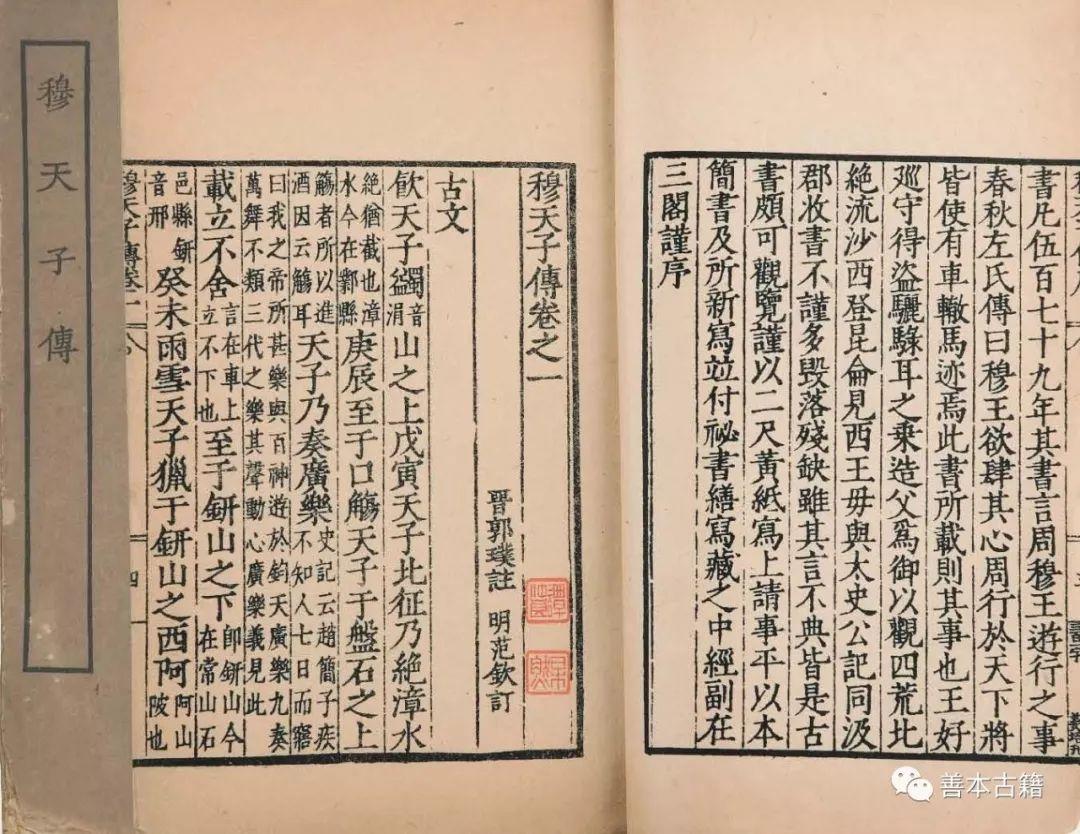 書凡伍百七十九年其書言周穆王遊行之事
春秋左氏傳曰穆王欲肆其心周行於天下將
皆使有車轍馬迹焉此書所載則其事也王好
巡守得盜驪騄耳之乗造父爲御以觀四荒北
絶流沙西登昆侖見西王毋與太史公記同汲
郡收書不謹多毀落殘缺雖其言不典皆是古
書頗可觀覽謹以二尺黃紙寫上請事平以本
簡書及所新寫並付祕書繕寫藏之中經副在
三閣謹序
穆天子傳卷之一
晉郭璞註 明范欽訂
古文
飮天子蠲音涓山之上戊寅天子北征乃絶漳水
絶猶截也漳水今在鄴縣庚辰至于口觴天子于盤石之上
觴者所以進酒因云觴耳天子乃奏廣樂史記云趙簡子疾不知人七日而寤
曰我之帝所甚樂與百神遊於鈞天廣樂九奏萬舞不類三代之樂其聲動心廣樂義見此
載立不舍言在車上立不下也至于鈃山之下即鈃山今在常山石
邑縣鈃音邢癸未雨雪天子獵于鈃山之西阿阿山陂也
穆天子傳卷一
四
穆天子傳
善本古籍